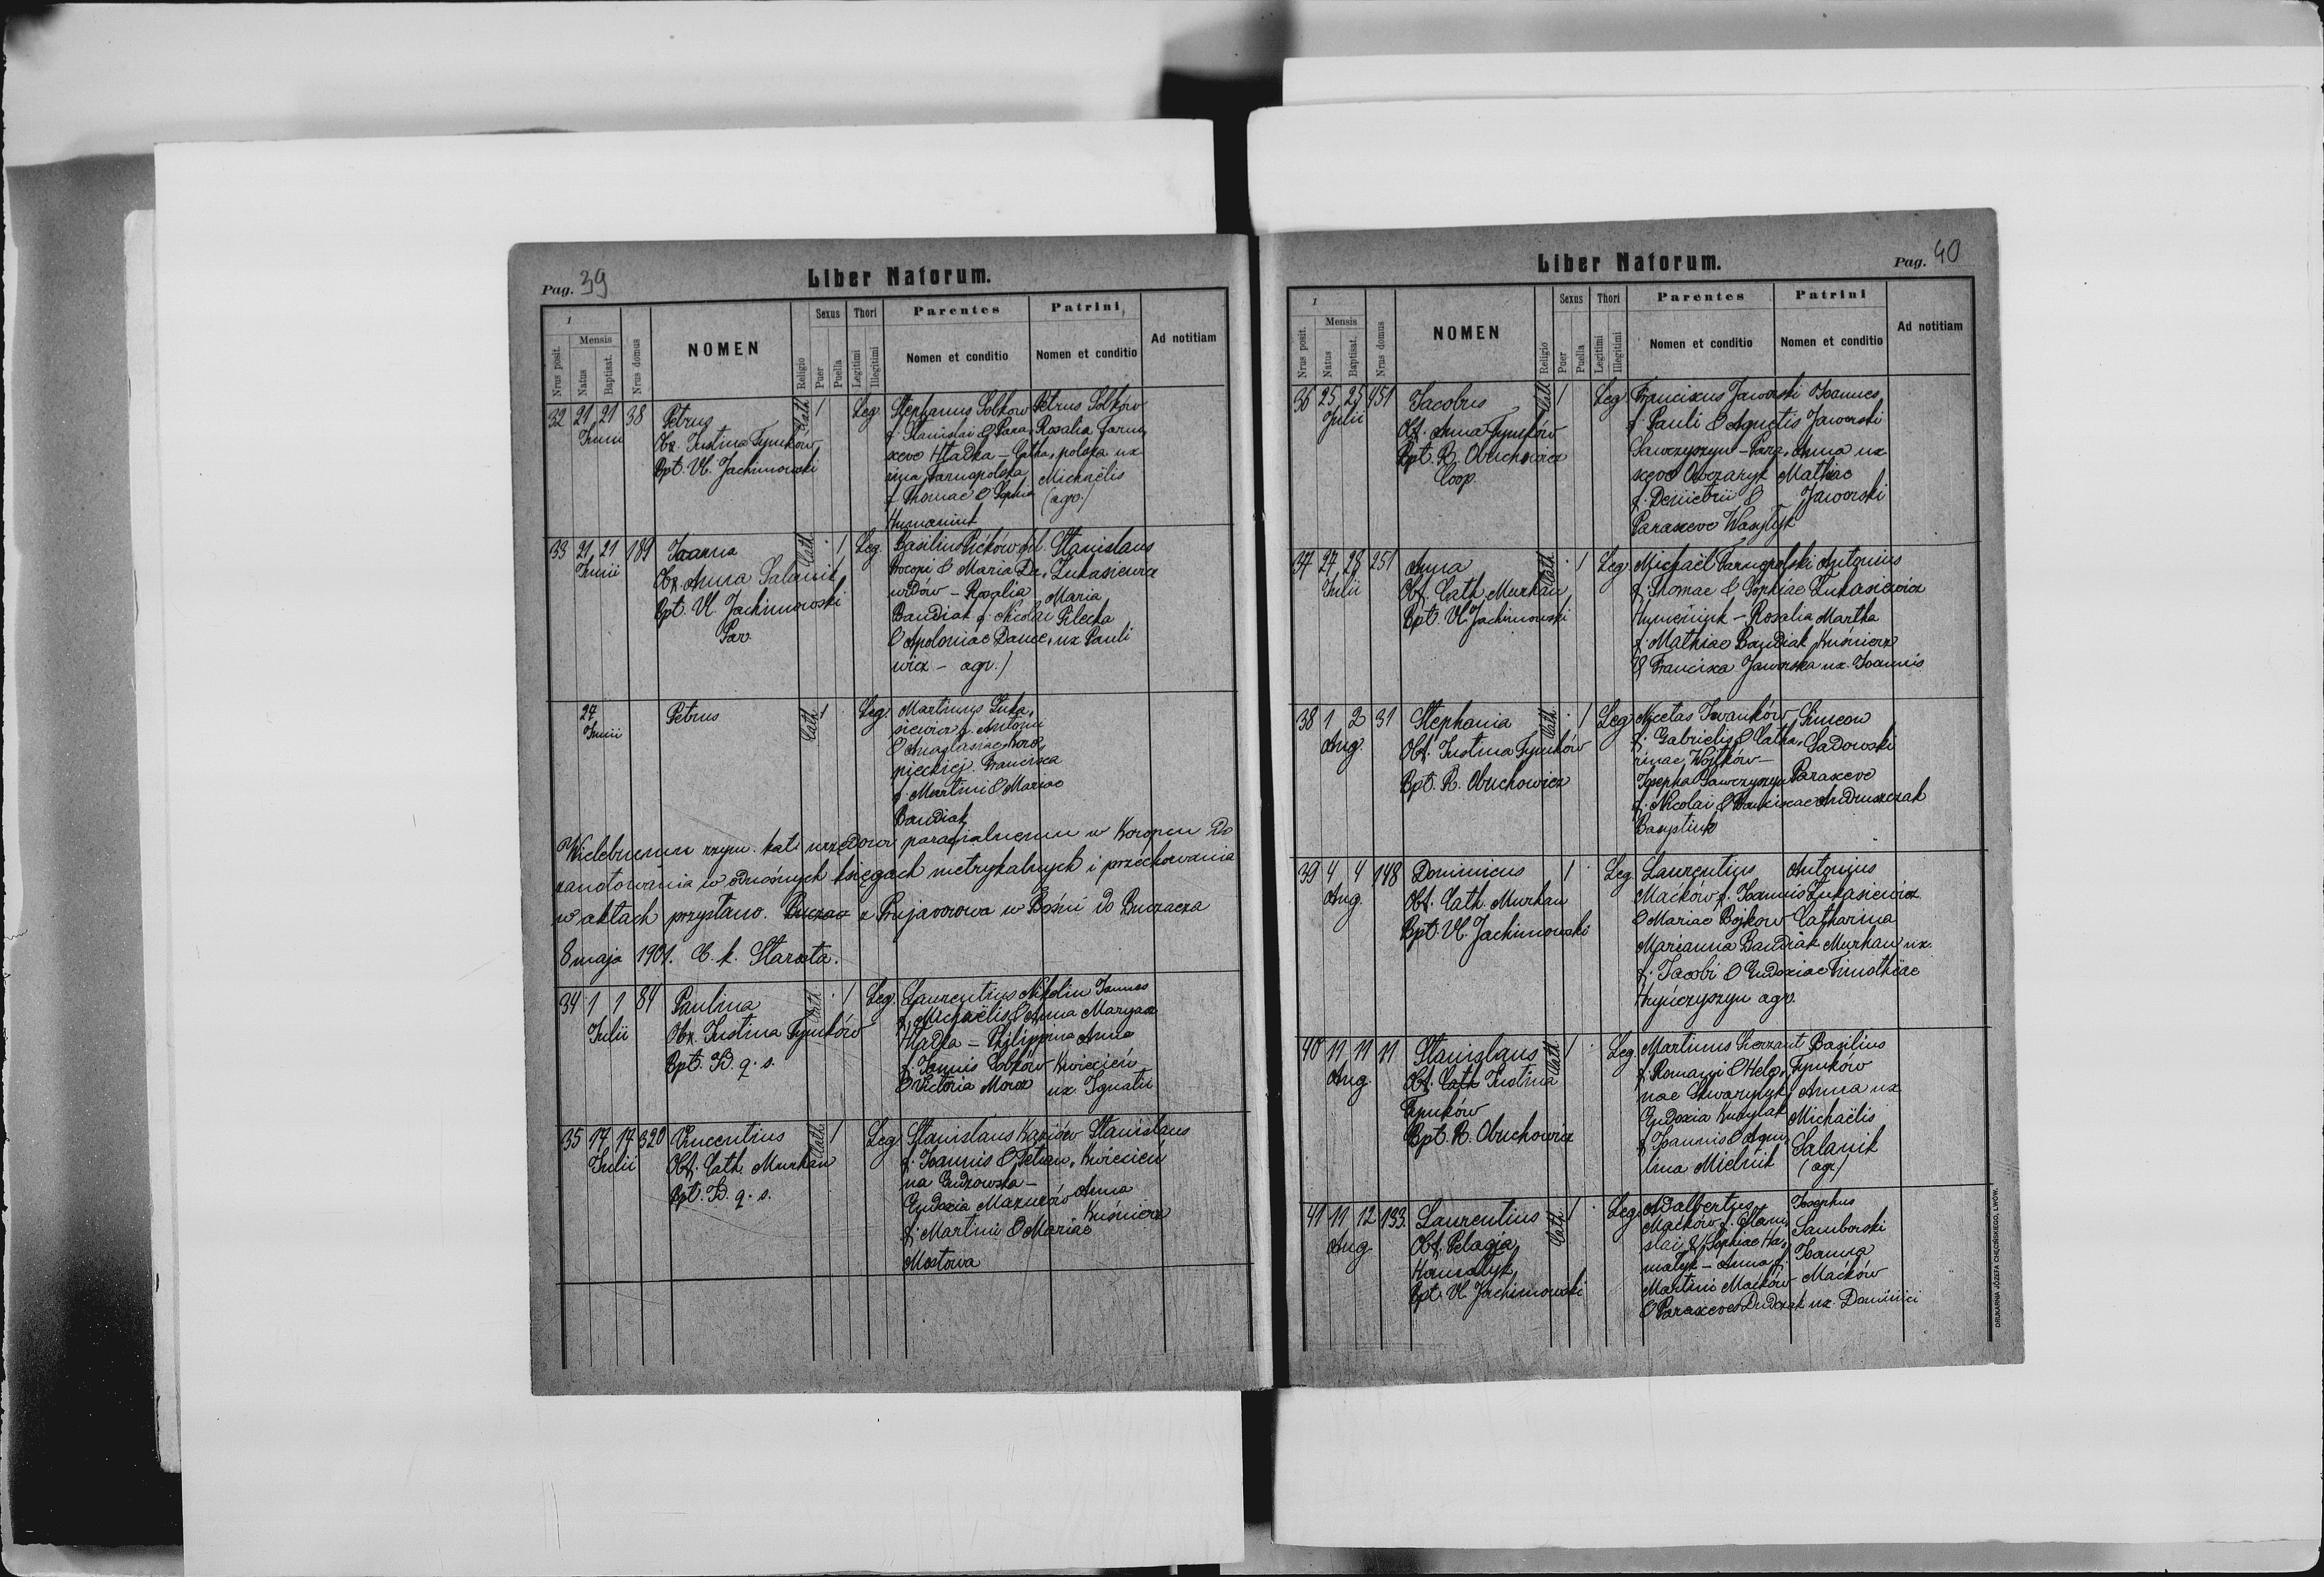 Pag. 39
Liber Natorum.
Nrus posit.
1
Mensis
Natus
Baptisat.
Nrus domus
NOMEN
Religio
Sexus
Puer
Puella
Thori
Legitimi
Illegitimi
Parentes
Nomen et conditio
Patrini
Nomen et conditio
Ad notitiam
32 21 21 38
Junii
Petrus
Obx. Justina Tymków
Bpt. Vl. Jachimowski
Cath
1
Leg.
Stephanus Sobkow
f. Stanislai & Para,
sceve Hladka - Catha,
rina Tarnopolska
f. Thomae & Sophia
Humeniuk
Petrus Sobków
Rosalia Tarno,
polska ux
Michaëlis
(agr.)
33 21 21 189
Junii
Joanna
Obx. Anna Salanik
Bpt. Vl. Jachimowski
Par.
Cath
1
Leg.
Basilius Pićków fil.
Procopi & Maria Da,
widów - Rosalia
Bandiak f. Nicolai
& Apoloniae Dance,
wicz - agr.)
Stanislaus
Łukasiewicz
Maria
Pilecka
ux Pauli
24
Junii
Petrus
Cath
1
Leg.
Martinus Łuka,
siewicz f. Antonii
& Anastasiae Koro,
pieckiej. Francisca
f. Martini & Mariae
Bandiak
Wielebnemu rzym. kat. urzędowi parafialnemu w Koropcu do
zanotowania w odnośnych księgach metrykalnych i przechowania
w aktach przysłano. z Prnjavorowa w Bośni do Buczacza
8 maja 1901. C. k. Starosta.
34 1 1 84
Julii
Paulina
Obx. Justina Tymków
Bpt. Id. q. s.
Cath
1
Leg.
Laurentius Nikolin
f. Michaëlis & Anna
Hladka - Philippina
f. Joannis Sobków
& Victoria Moroz
Joannes
Maryasz
Anna
Kwiecień
ux. Ignatii
35 17 17 320
Julii
Vincentius
Obf. Cath. Murhan
Bpt. Id. q. s.
Cath
1
Leg.
Stanislaus Kaziów
f. Joannis & Tetian,
na Gudzowska -
Eudoxia Mazurów
f. Martini & Mariae
Mostowa
Stanislaus
Kwiecien
Anna
Kuśnierz
Liber Natorum.
Pag. 40
Nrus posit.
1
Mensis
Natus
Baptisat.
Nrus domus
NOMEN
Religio
Sexus
Puer
Puella
Thori
Legitimi
Illegitimi
Parentes
Nomen et conditio
Patrini
Nomen et conditio
Ad notitiam
36 25 25 451
Julii
Jacobus
Obf. Anna Tymków
Bpt. R. Obuchowicz
Coop.
Cath
1
Leg
Franciscus Jaworski
f. Pauli & Agnetis
Sawczyszyn - Para,
sceve Owczaryk
f. Demetrii &
Parasceve Wasylyk
Joannes
Jaworski
Anna ux
Mathiae
Jaworski
37 27 28 251
Julii
Anna
Obf. Cath Murhan
Bpt. Vl. Jachimowski
Cath
1
Leg
Michaël Tarnopolski
f. Thomae & Sophiae
Humeniuk - Rosalia
f. Mathiae Bandiak
& Francisca Jaworska
Antonius
Łukasiewicz
Martha
Kuśnierz
ux. Joannis
38 1 2 31
Aug.
Stephania
Obf. Justina Tymków
Bpt. R. Obuchowicz
Cath
1
Leg
Nicetas Iwanków
f. Gabrielis & Catha,
rinae Wojtków -
Josepha Sawczyszyn
f. Nicolai & Franciscae
Basystiuk
Simeon
Sadowski
Parasceve
Andruszczak
39 4 4 148
Aug.
Dominicus
Obf. Cath. Murhan
Bpt. Vl. Jachimowski
1
Leg
Laurentius
Maćków f. Joannis
& Mariae Bojkow
Marianna Bandiak
f. Jacobi & Eudoxiae
Hryńczyszyn agr.
Antonius
Łukasiewicz
Catharina
Murhan ux.
Timothëae
40 11 11 11
Aug.
Stanislaus
Obf. Cath Justina
Tymków
Bpt. R. Obuchowicz
Cath
1
Leg.
Martinus Sierzant
f. Romani & Hele,
nae Skwaryłyk
Eudoxia Kurylak
f. Joannis & Aqui,
lina Mielnik
Basilius
Tymków
Anna ux
Michaëlis
Salanik
(agr.)
41 11 12 133.
Aug
Laurentius
Obf. Pelagia
Hamalyk
Bpt. Vl. Jachimowski
Cath
1
Leg.
Adalbertus
Maćków f. Stani,
slai & Sophiae Ha,
malyk - Anna f.
Martini Maćków
& Parasceve Dudczak
Josephus
Samborski
Joanna
Maćków
ux. Dominici
DRUKARNIA JÓZEFA CHĘCIŃSKIEGO, LWÓW.